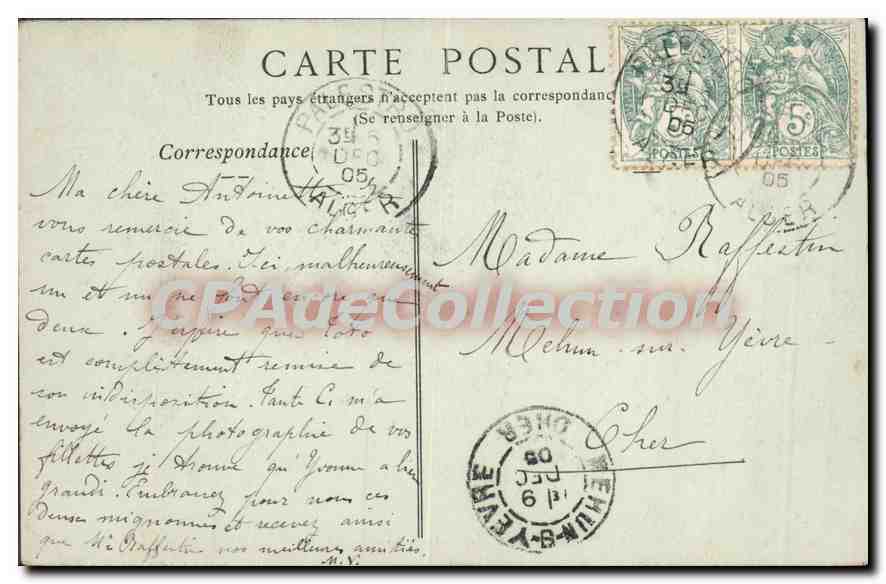 CARTE POSTALE
Tous les pays étrangers n'acceptent pas la correspondance
(Se renseigner à la Poste).
Correspondance
Ma chère Antoinette, Je
vous remercie de vos charmante
cartes postales. Ici, malheureusement
un et un ne font encore que
deux. J'espère que Toto
est complètement remise de
son indisposition. Tante C. m'a
envoyé la photographie de vos
fillettes je trouve qu'Yvonne a bien
grandi. Embrassez pour nous ces
deux mignonnes et recevez ainsi
que Mr Raffestin nos meilleures amitiés.
M. V.
Madame Raffestin
Mehun-sur-Yèvre
Cher
PALESTRO
DEC
05
ALGER
5c
POSTES
POSTES
05
ALGER
MEHUN-S-YEVRE
CHER
9
DEC
05
CPAdeCollection.com